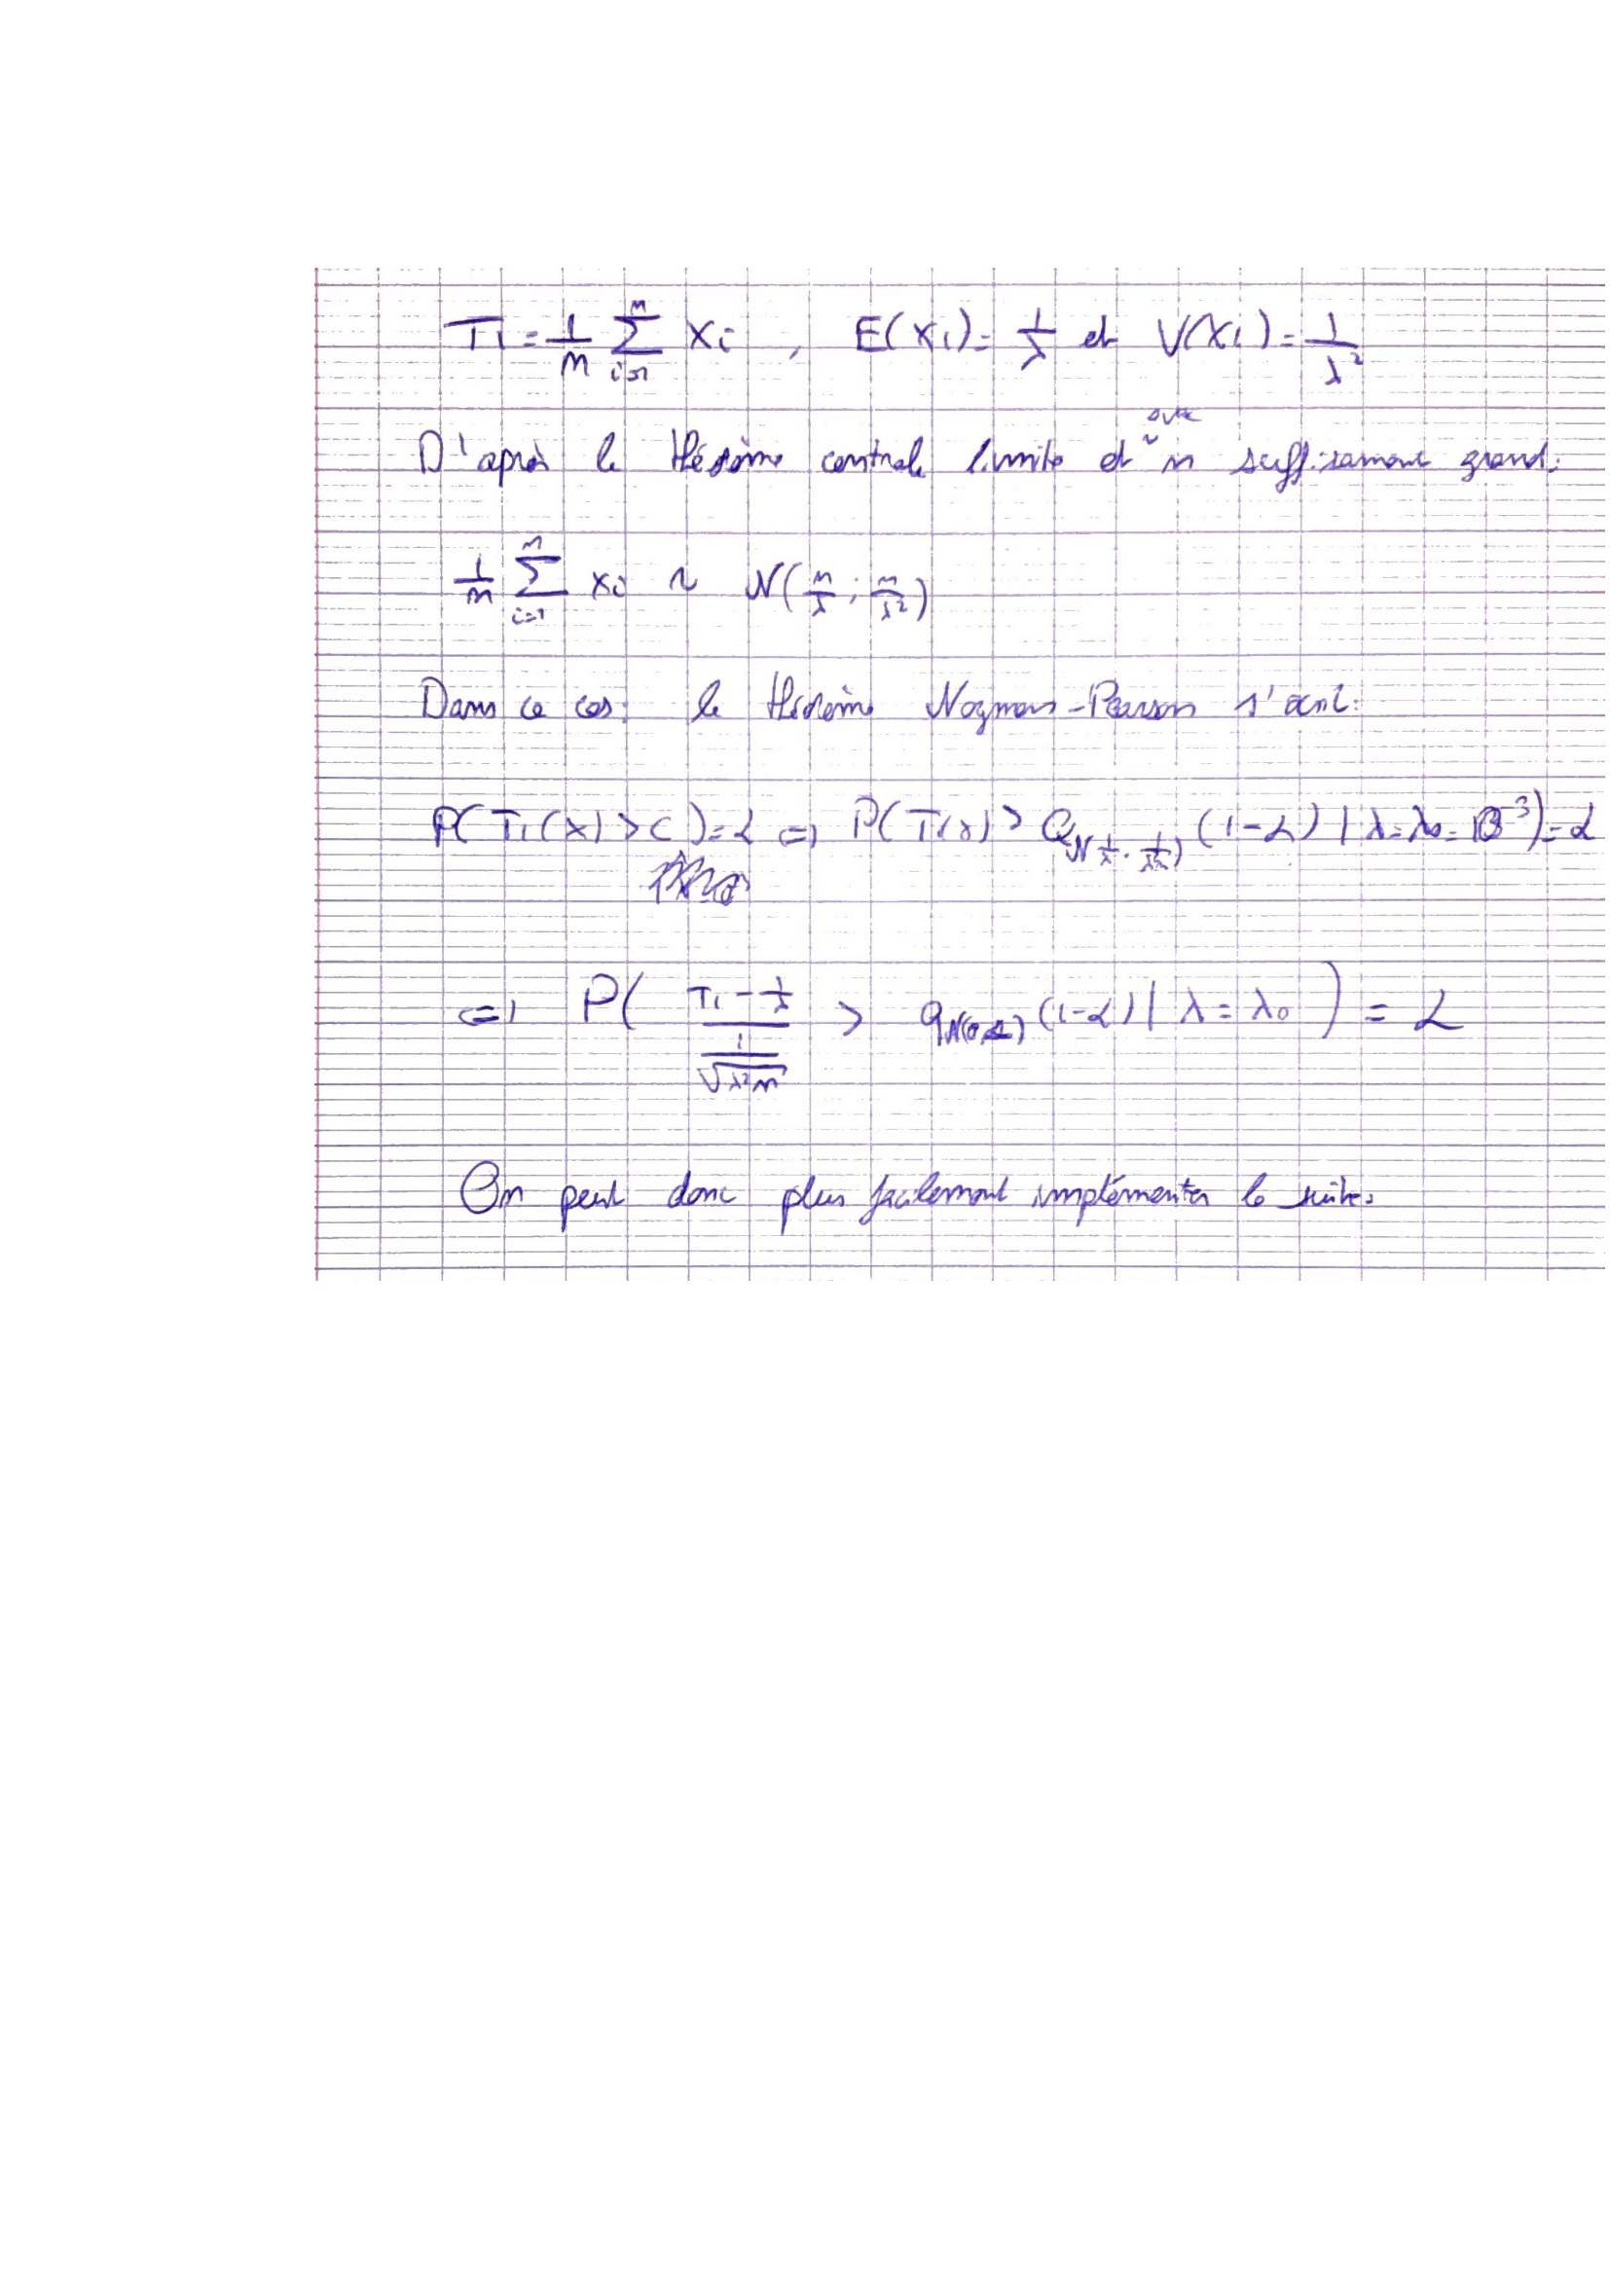 T₁ = 1/n ∑_{i=1}^{n} Xi , E(Xi) = 1/λ et V(Xi) = 1/λ²
D'après le théorème centrale limite et avec n suffisament grand:
1/n ∑_{i=1}^{n} Xi ~ N(n/λ ; n/λ²)
Dans ce cas: le théorème Neyman-Pearson s'écrit:
P(T₁(X) > C) = α => P(T₁(X) > Q_{N(1/λ, 1/λ²n)} (1-α) | λ = λ₀ = 10⁻³) = α
=> P( (T₁ - 1/λ) / (1/√(λ²n)) > q_{N(0,1)} (1-α) | λ = λ₀ ) = α
On peut donc plus facilement implémenter la suite.